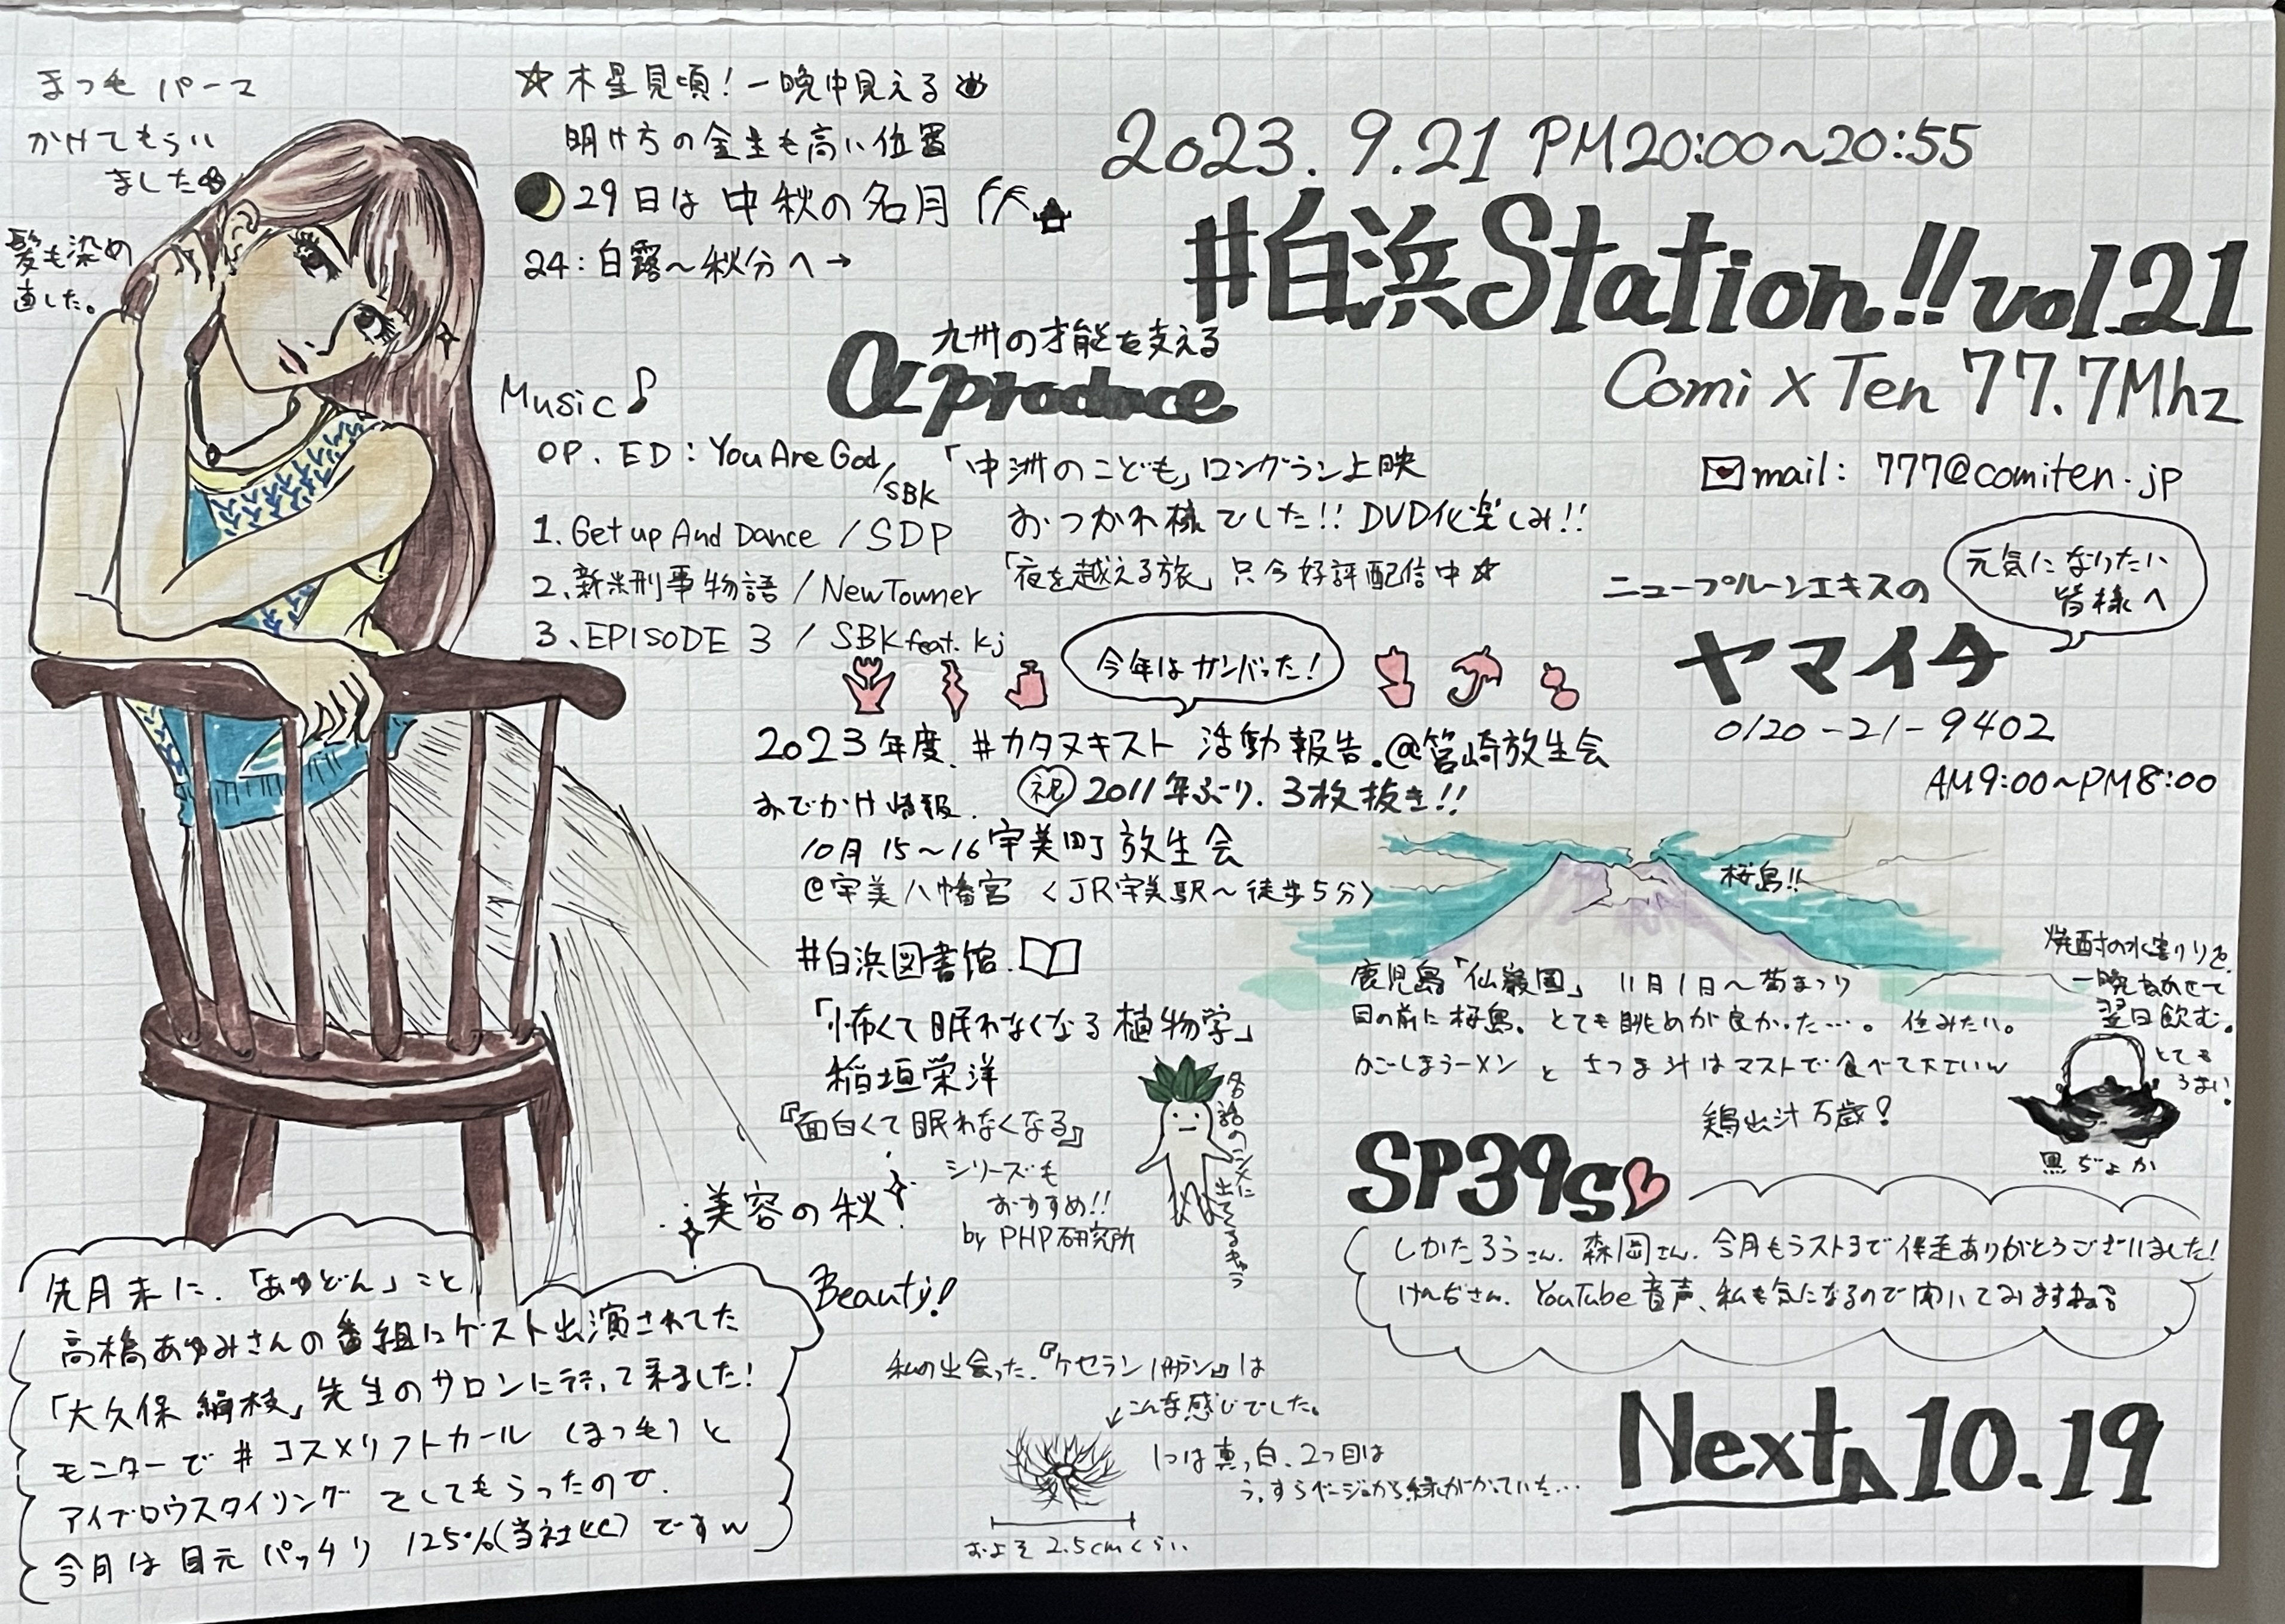 まつ毛パーマ
かけてもらい
ました
髪も染め
直した。
☆木星見頃!一晩中見える
明け方の金星も高い位置
29日は中秋の名月
24:白露〜秋分へ→
2023.9.21 PM20:00〜20:55
#白浜Station!!vol.21
Comi×Ten 77.7Mhz
mail: 777@comiten.jp
九州の才能を支える
α produce
「中洲のこども」ロングラン上映
おつかれ様でした!!DVD化楽しみ!!
「夜を越える旅」只今好評配信中☆
Music♪
OP. ED: You Are God/SBK
1. Get up And Dance / SDP
2. 新米刑事物語 / NewTowner
3. EPISODE 3 / SBK feat. Kj
元気になりたい
皆様へ
ニュープルーンエキスの
ヤマイチ
0120-21-9402
AM9:00〜PM8:00
今年はガンバった!
2023年度.#カタヌキスト 活動報告.@筥崎放生会
祝 2011年ぶり.3枚抜き!!
おでかけ情報.
10月15〜16宇美町放生会
@宇美八幡宮 <JR宇美駅〜徒歩5分>
#白浜図書館.
「怖くて眠れなくなる植物学」
稲垣栄洋
『面白くて眠れなくなる』
シリーズも
おすすめ!!
by PHP研究所
各話のシメに出てくるキャラ
桜島!!
鹿児島「仙巌園」 11月1日〜菊まつり
目の前に桜島。とても眺めが良かった…。住みたい。
かごしまラーメンとさつま汁はマストで食べて下さいw
鶏出汁万歳!
焼酎の水割りを
一晩ねかせて
翌日飲む。
とても
うまい!
黒ぢょか
SP39s
しかたろうさん.森岡さん.今月もラストまで伴走ありがとうございました!
けんぢさん.YouTube音声、私も気になるので聞いてみますね
美容の秋!
Beauty!
先月末に.「あゆどん」こと
高橋あゆみさんの番組にゲスト出演されてた
「大久保 絹枝」先生のサロンに行って来ました!
モニターで#コスメリフトカール(まつ毛)と
アイブロウスタイリングをしてもらったので.
今月は目元パッチリ 125%(当社比)ですw
私の出会った.『ケセランパサラン』は
こんな感じでした。
1つは真っ白、2つ目は
うっすらベージュから緑がかっていた…
およそ2.5cmくらい
Next 10.19